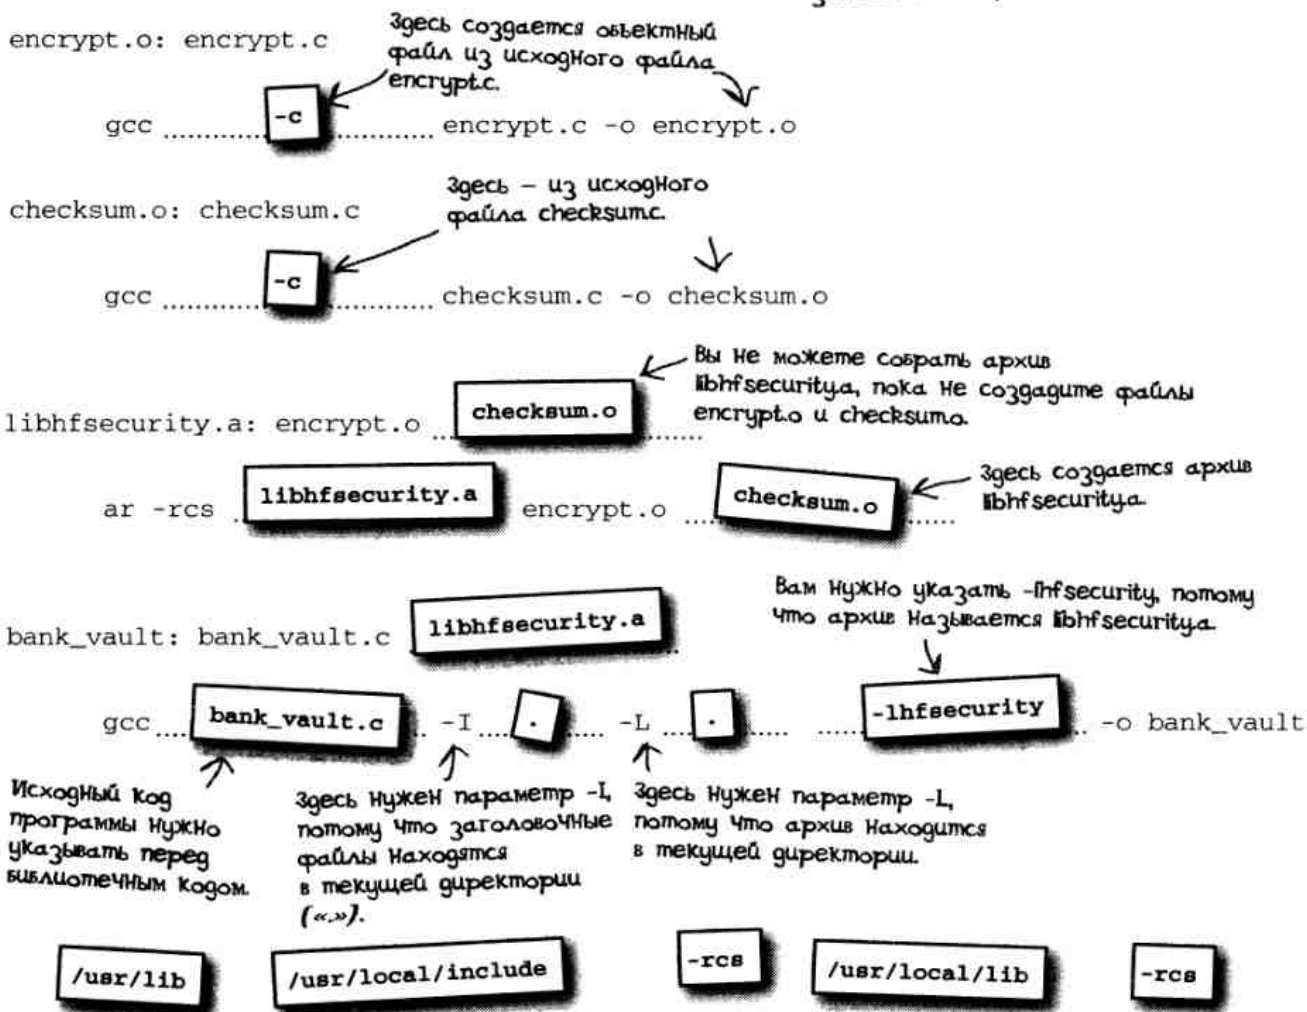 encrypt.o: encrypt.c
Здесь создается объектный
файл из исходного файла
encrypt.c.
gcc -c encrypt.c -o encrypt.o
checksum.o: checksum.c
Здесь – из исходного
файла checksum.c.
gcc -c checksum.c -o checksum.o
Вы не можете собрать архив
libhfsecurity.a, пока не создадите файлы
encrypt.o и checksum.o.
libhfsecurity.a: encrypt.o checksum.o
ar -rcs libhfsecurity.a encrypt.o checksum.o
Здесь создается архив
libhfsecurity.a.
Вам нужно указать -lhfsecurity, потому
что архив называется libhfsecurity.a.
bank_vault: bank_vault.c libhfsecurity.a
gcc bank_vault.c -I . -L . -lhfsecurity -o bank_vault
Исходный код
программы нужно
указывать перед
библиотечным кодом.
Здесь нужен параметр -I,
потому что заголовочные
файлы находятся
в текущей директории
(«.»).
Здесь нужен параметр -L,
потому что архив находится
в текущей директории.
/usr/lib /usr/local/include -rcs /usr/local/lib -rcs